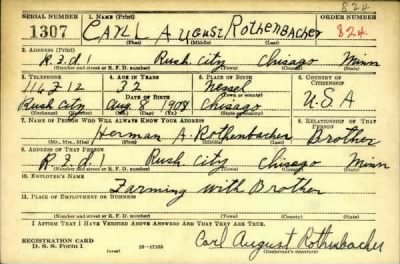 824
SERIAL NUMBER 1. NAME (Print) ORDER NUMBER
1307 CARL August Rothenbacher 824
(First) (Middle) (Last)
2. ADDRESS (Print)
R.F.d.1 Rush City Chisago Minn
(Number and street or R. F. D. number) (Town) (County) (State)
3. TELEPHONE 4. AGE IN YEARS 5. PLACE OF BIRTH 6. COUNTRY OF CITIZENSHIP
116F12 32 Nessel
DATE OF BIRTH (Town or county)
Rush City Aug 8 1908 Chisago U.S.A
(Exchange) (Number) (Mo.) (Day) (Yr.) (State or country)
7. NAME OF PERSON WHO WILL ALWAYS KNOW YOUR ADDRESS 8. RELATIONSHIP OF THAT PERSON
Herman A. Rothenbacher Brother
(Mr., Mrs., Miss) (First) (Middle) (Last)
9. ADDRESS OF THAT PERSON
R.F.d.1 Rush City Chisago Minn
(Number and street or R. F. D. number) (Town) (County) (State)
10. EMPLOYER'S NAME
Farming with Brother
11. PLACE OF EMPLOYMENT OR BUSINESS
(Number and street or R. F. D. number) (Town) (County) (State)
I AFFIRM THAT I HAVE VERIFIED ABOVE ANSWERS AND THAT THEY ARE TRUE.
REGISTRATION CARD
D. S. S. Form 1 16-17105 Carl August Rothenbacher
(Registrant's signature)